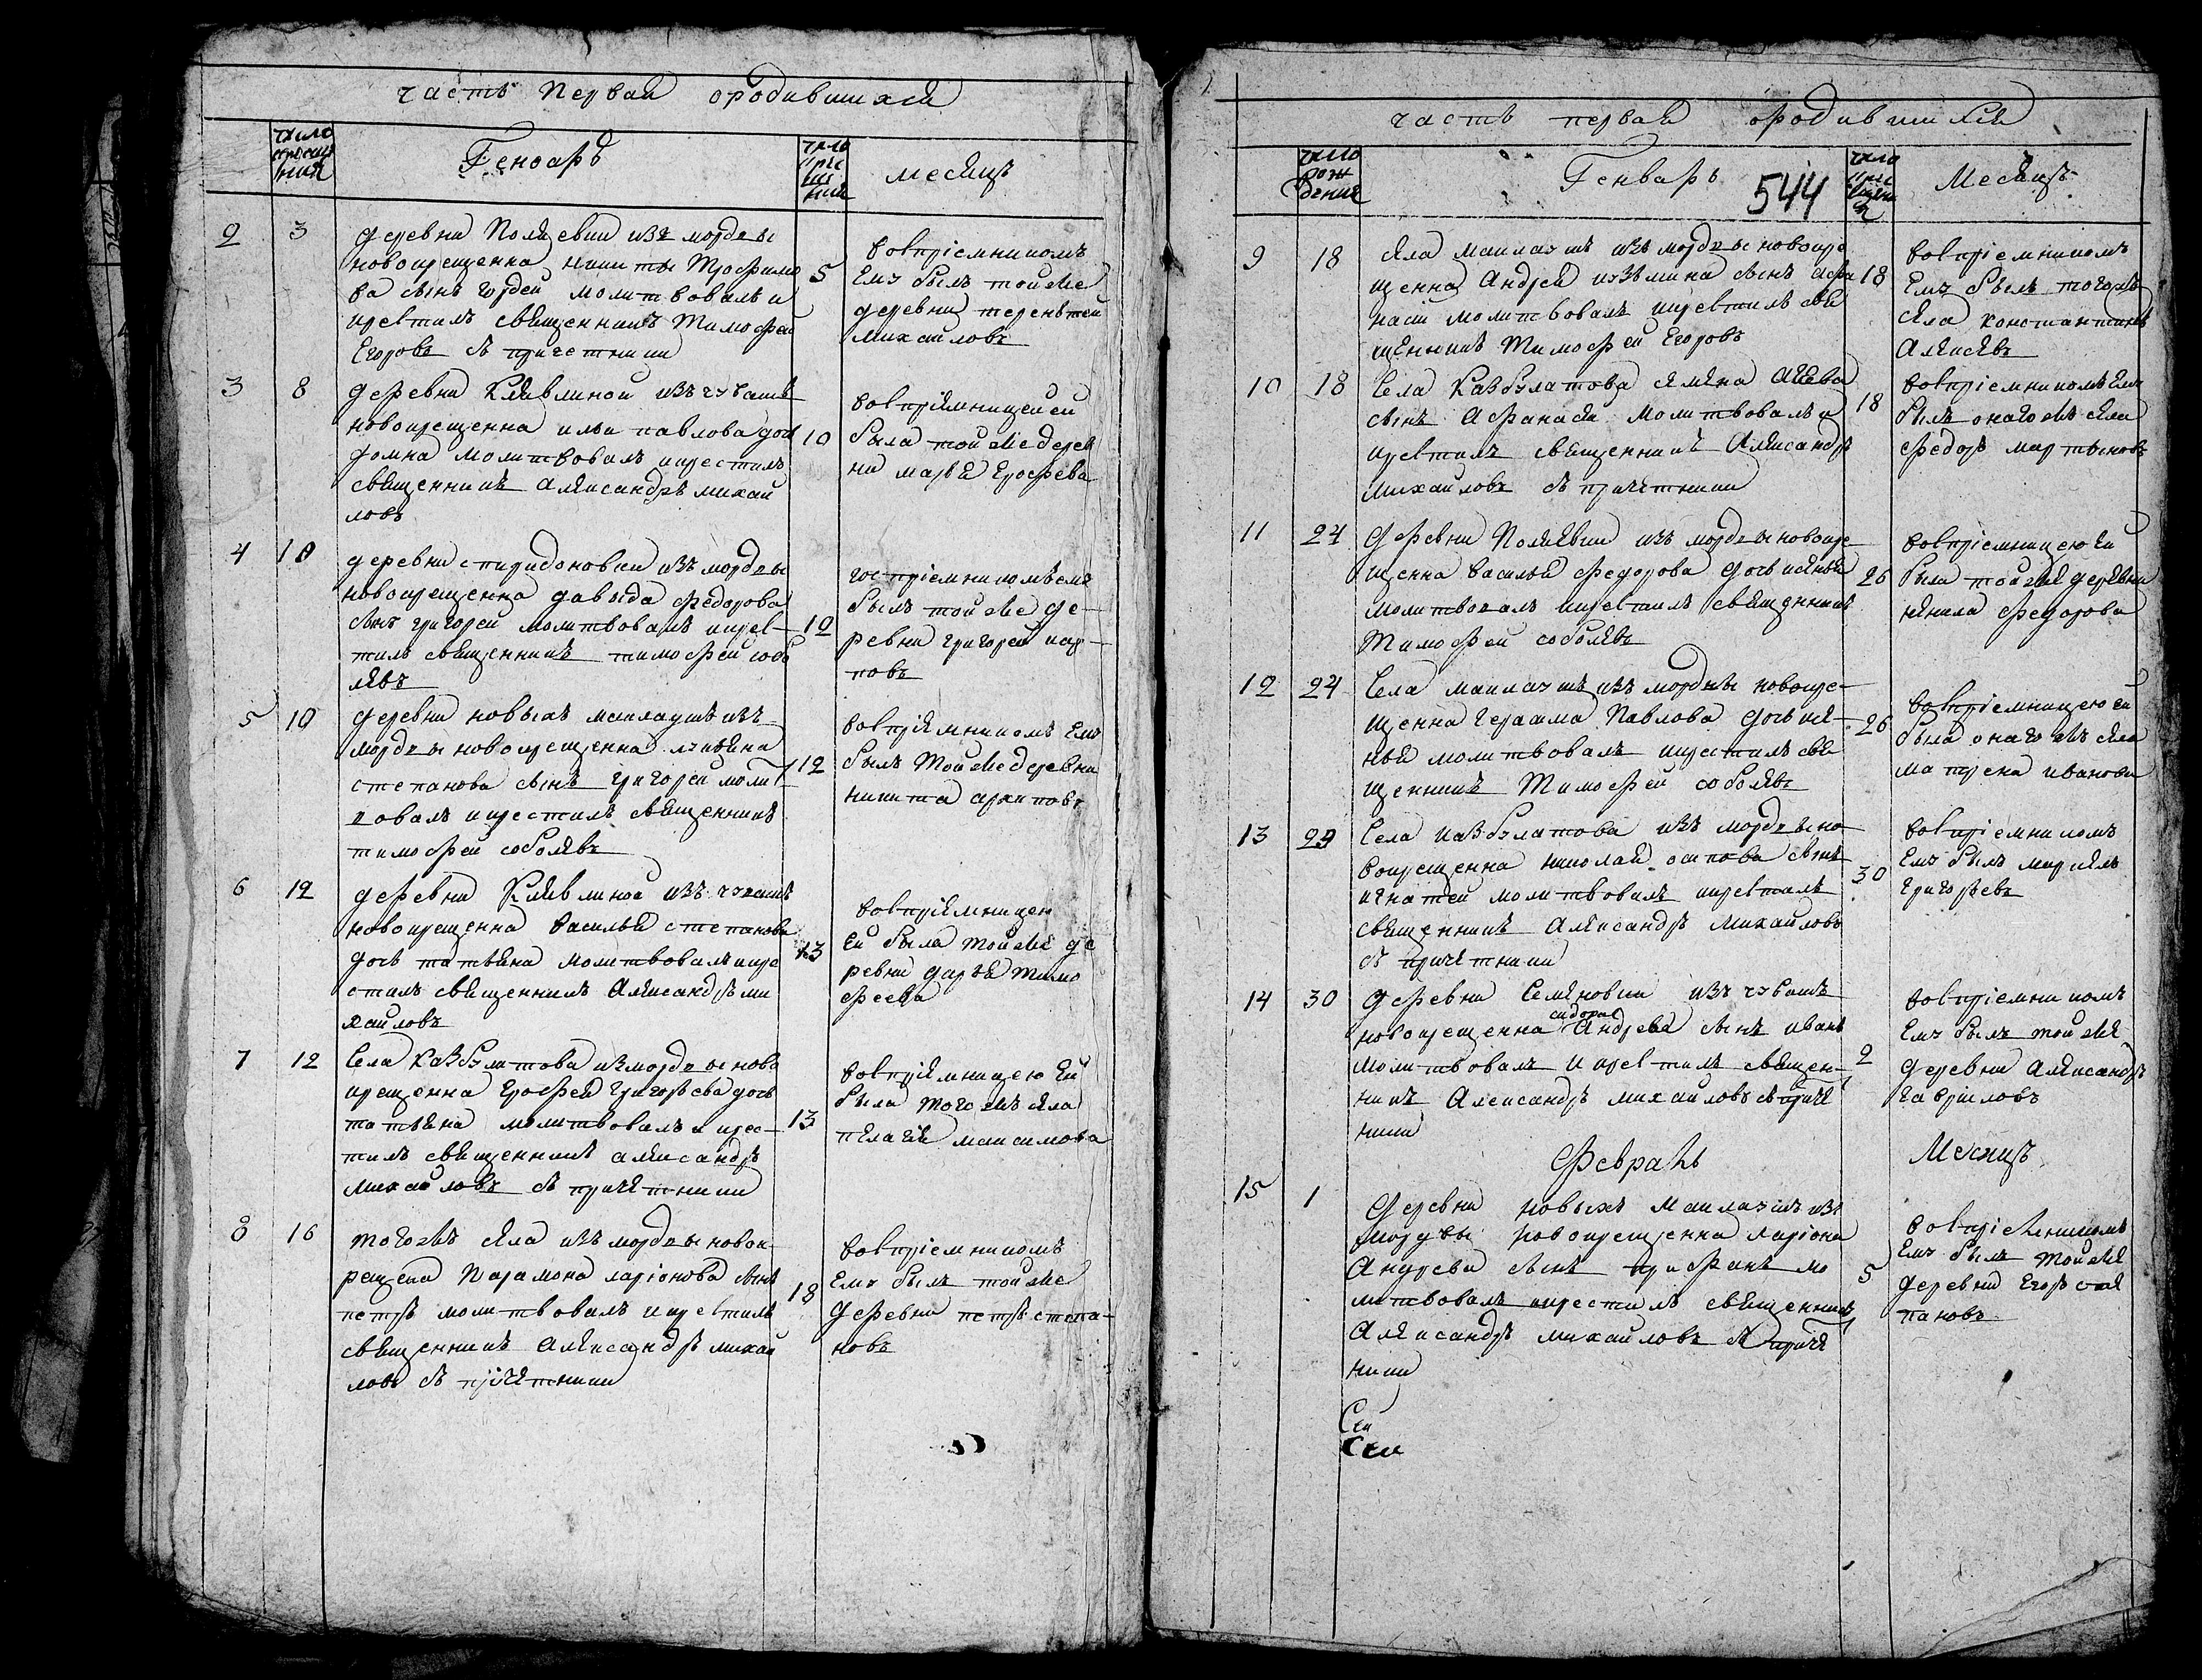 часть первая ородившихся
число
рожде
ния
Генварь
число
кре
ще
ния
месяцъ
2
3
деревни Поляевки изъ мордвы
новокрещенна никиты Трофимо
ва сынъ гордей молитвовалъ и
крестилъ священникъ Тимофей
Егоровъ съ причетники
5
восприемникомъ
Ему былъ тойже
деревни терентей
михайловъ
3
8
деревни Клявлиной изъ чувашъ
новокрещенна ильи павлова дочь
домна молитвовалъ икрестилъ
священникъ александръ михай
ловъ
10
восприемницей ей
была тойже дерев
ни марья ерофеева
4
10
деревни спиридоновки изъ мордвы
новокрещенна давыда федорова
сынъ григорей молитвовалъ икрес-
тилъ священникъ тимофей собо
левъ
10
воспріемникомъ ему
былъ тойже де-
ревни григорей кар-
повъ
5
10
деревни новыхъ маклаушъ изъ
мордвы новокрещенна
степанова сынъ григорей молит
вовалъ икрестилъ священникъ
тимофей соболевъ
12
восприемникомъ Ему
былъ тойже деревни
никита архиповъ
6
12
деревни Клявлиной изъ чувашъ
новокрещенна василья степанова
дочь татьяна молитвовалъ икре
стилъ священникъ александръ ми
хайловъ
13
восприемницею
Ей была тойже де
ревни дарья тимо
феева
7
12
Села Казбулатова измордвы ново
крещенна Ерофея григорьева дочь
татьяна молитвовалъ и крес-
тилъ священникъ александръ
михайловъ съ причетники
13
восприемницею Ей
была тогожъ села
пелагія максимова
8
16
тогожъ села изъ мордвы новок-
рещена Парамона ларіонова сынъ
петръ молитвовалъ и крестилъ
священникъ александръ михай
ловъ съ причетники
18
воспріемникомъ
Ему былъ тойже
деревни петръ степа-
новъ
часть первая ородившихся
число
рож
дения
Генварь
544
число
кре
щени
я
Месяцъ
9
18
села маклаушъ изъ мордвы новокре
щенна андрея кузьмина сынъ афа
насій молитвовалъ икрестилъ свя
щенникъ Тимофей Егоровъ
18
воспріемникомъ
Ему былъ тогожъ
села константинъ
алексевъ
10
18
Села Казбулатова
сынъ афанасій молитвовалъ и
крестилъ священникъ александръ
михайловъ съ причетники
18
воспріемникомъ Ему
былъ онагожъ села
федоръ мартыновъ
11
24
деревни Поляевки изъ мордвы новокре-
щенна василья федорова дочь ксенья
молитвовалъ икрестилъ священникъ
Тимофей соболевъ
26
воспріемницею Ей
была тойже деревни
ненила федорова
12
24
Села маклаушъ изъ мордвы новокре-
щенна герасима Павлова дочь ксе-
нья молитвовалъ икрестилъ свя
щенникъ Тимофей соболевъ
26
воспріемницею ей
была онагожъ села
матрена иванова
13
29
Села казбулатова изъ мордвы но
вокрещенна николая осипова сынъ
игнатей молитвовалъ икрестилъ
священникъ александръ михайловъ
съ причетники
30
воспріемникомъ
Ему былъ маркелъ
григорьевъ
14
30
деревни Семеновки изъ чувашъ
сидора
новокрещенна андреева сынъ иванъ
молитвовалъ и крестилъ священ-
никъ александръ михайловъ съ приче
ники
2
воспріемникомъ
Ему былъ тойже
деревни александръ
гавриловъ
Февраль
Месяцъ
15
1
деревни новыхъ маклаушъ изъ
мордвы новокрещенна ларіона
Андреева сынъ трифанъ мо
литвовалъ икрестилъ священникъ
александръ михайловъ съ приче
ники
5
воспріемникомъ
Ему былъ тойже
деревни Егоръ сте
пановъ